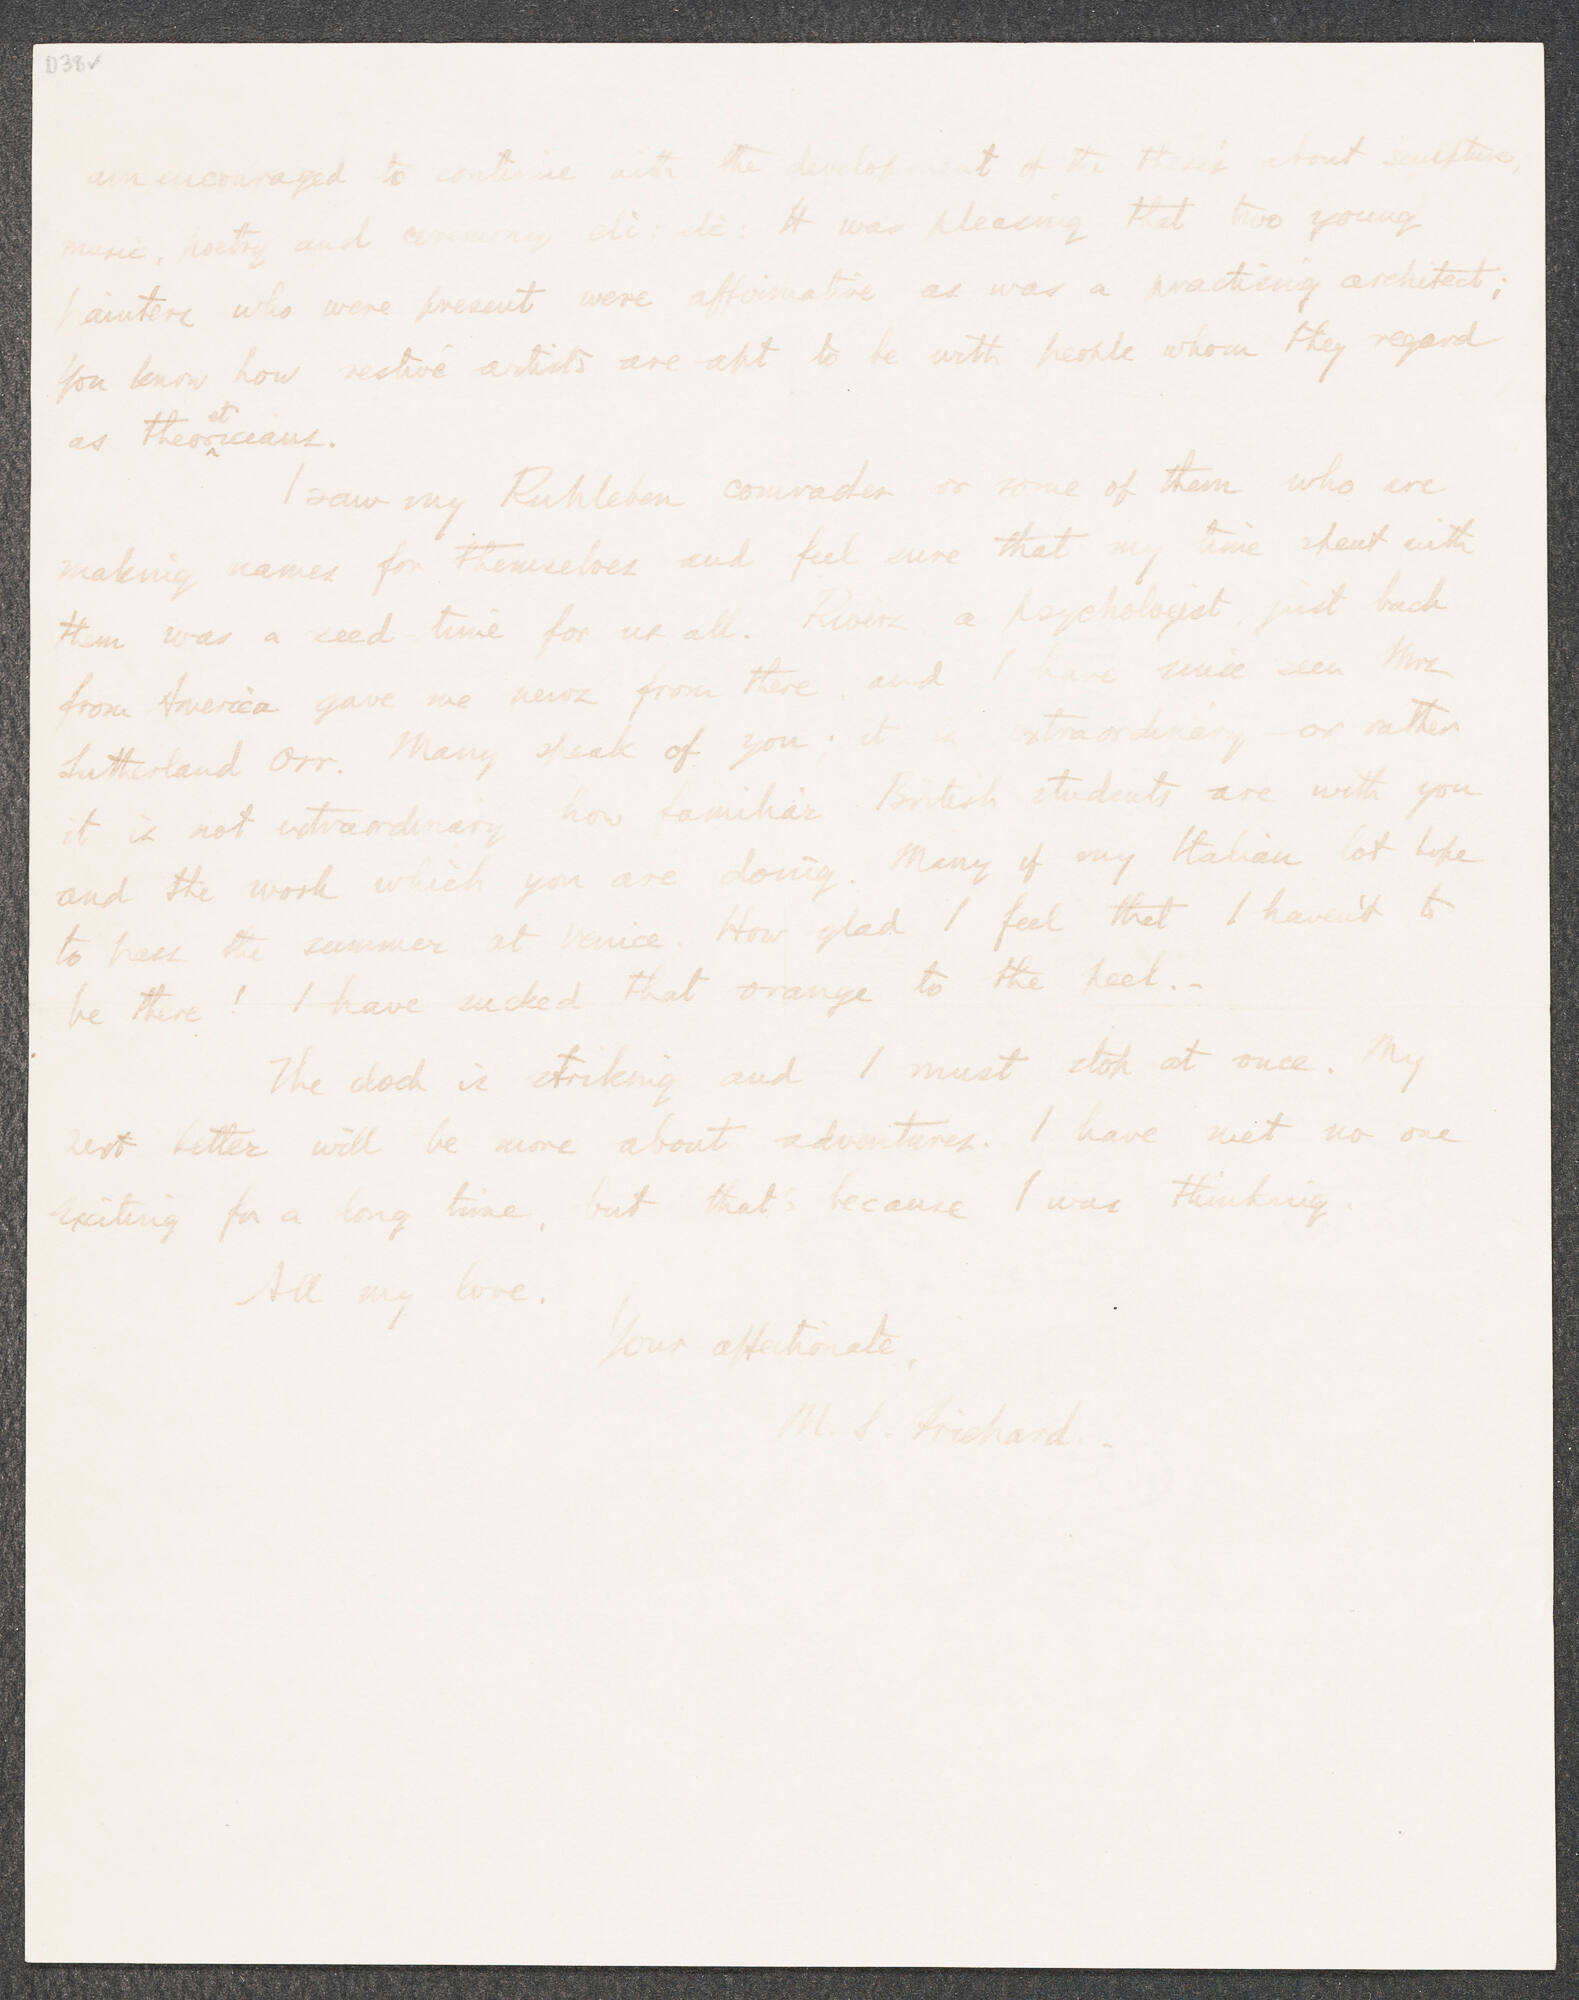 D38v
am encouraged to continue with the development of the thesis about sculpture,
music, poetry and ceremony etc: etc: It was pleasing that two young
painters who were present were affirmative as was a practising architect;
You know how restive artists are apt to be with people whom they regard
as theoreticians.
I saw my Ruhleben comrades or some of them who are
making names for themselves and feel sure that my time spent with
them was a seed-time for us all. Rivers a psychologist, just back
from America gave me news from there, and I have since seen Mrs
Sutherland Orr. Many speak of you. it is extraordinary – or rather
it is not extraordinary how familiar British students are with you
and the work which you are doing. Many of my Italian lot hope
to pass the summer at Venice. How glad I feel that I haven't to
be there! I have sucked that orange to the peel. –
The clock is striking and I must stop at once. My
next letter will be more about adventures. I have met no one
exciting for a long time, but that's because I was thinking.
All my love.
Your affectionate,
M. S. Prichard. –